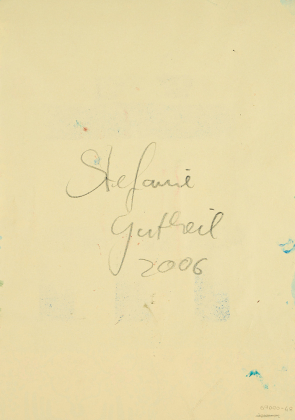 Stefanie
Gutheil
2006